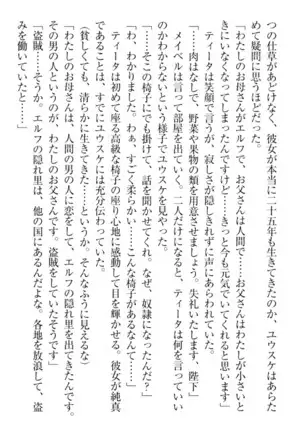 つの仕草があどけなく、彼女が本当に二十五年も生きてきたのか、ユウスケはあらた
めて疑問に思うほどだった。
「わたしのお母さんがエルフで、お父さんは人間で……お父さんはわたしが小さいと
きにいなくなってしまったんですけど……きっと今も元気でいてくれると思います」
ティータは笑顔で言うが、寂しさが隠しきれずに声にあらわれていた。
「……肉はなしで、野菜や果物の類を用意させましょう。失礼いたします、陛下」
メイベルは言って部屋を出ていく。二人だけになると、ティータは何を言っていい
のかわからないという様子でユウスケを見やった。
「……そこの椅子にでも掛けて、話を聞かせてくれ。なぜ、奴隷になったんだ？」
「わ、わかりました。わぁ、すごく柔らかい……こんな椅子があるなんて……」
ティータは初めて座る高級な椅子の座り心地に感動して目を輝かせる。彼女が純真
であることは、すでにユウスケには充分伝わっていた。
（貧しくても、清らかに生きてきた……というか。そんなふうに見えるな）
「わたしのお母さんは、人間の男の人に恋をして、エルフの隠れ里を出てきたんです。
その男の人というのが、わたしのお父さんです。盗賊をしていたそうです」
「盗賊……そうか。エルフの隠れ里は、他の国にあるんだよな。各地を放浪して、盗
みを働いていたと……」